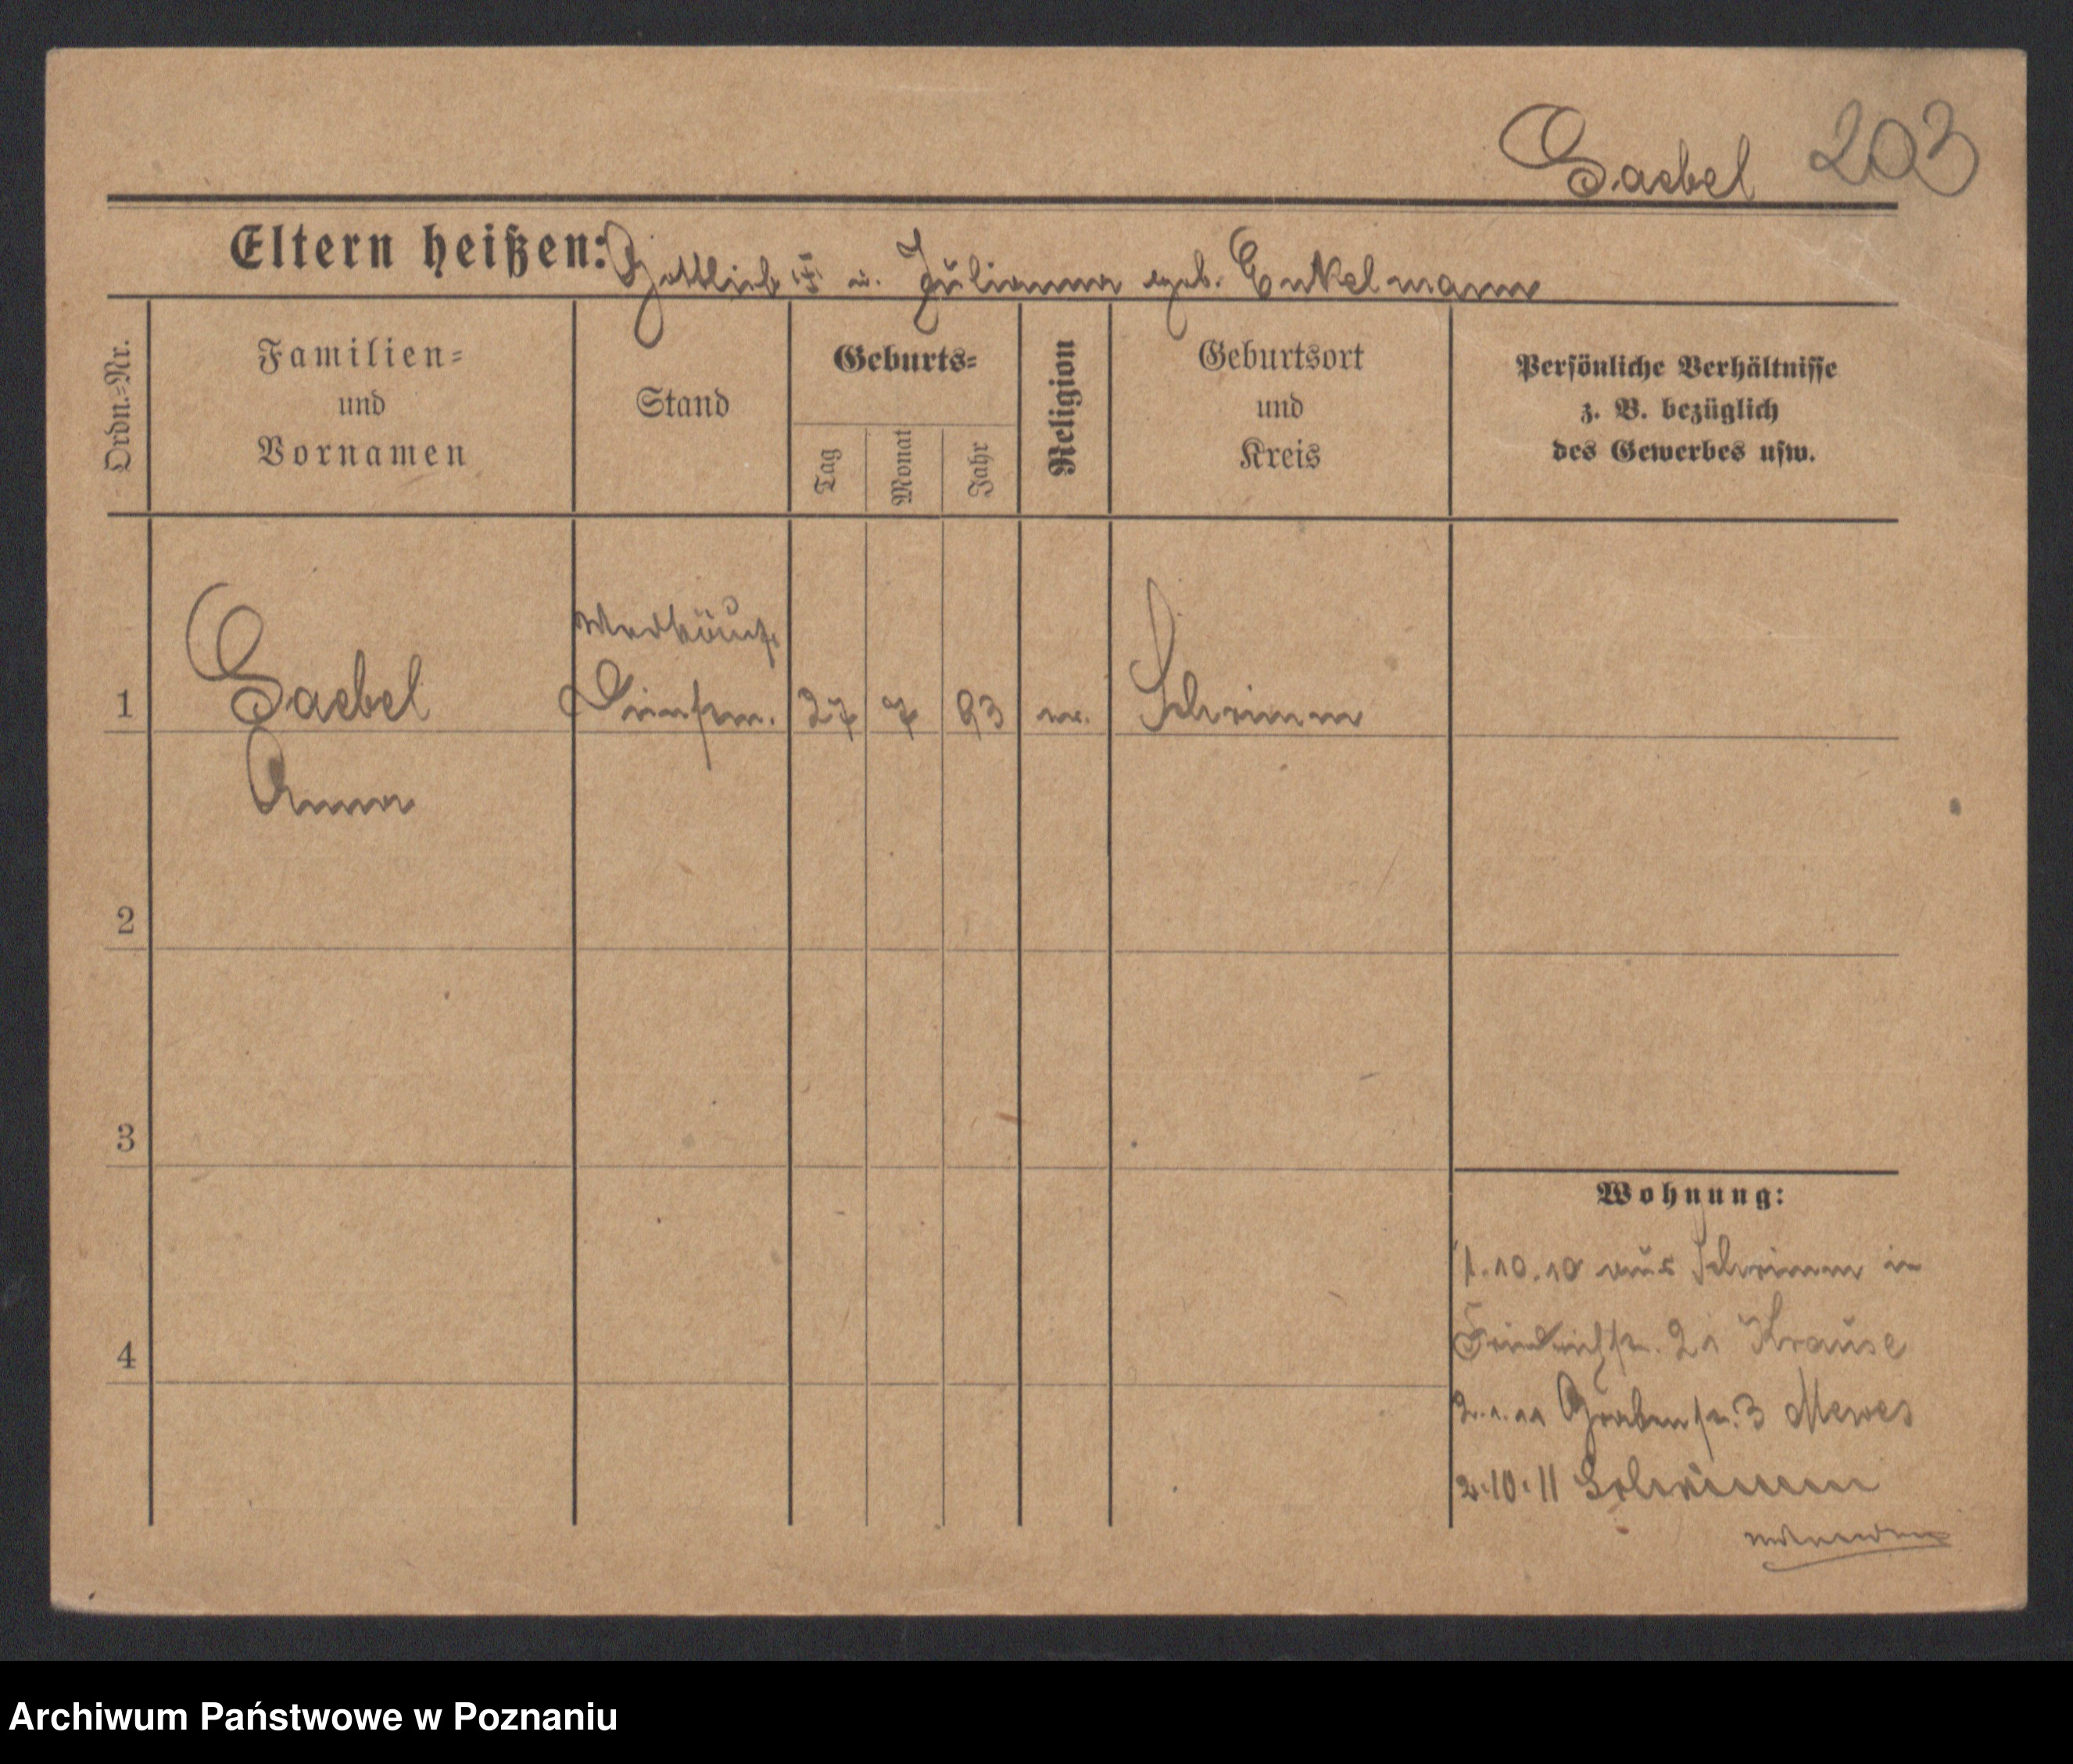 Gaebel 203
Eltern heißen: Gottlieb † u. Julianna geb. Enkelmann
Ordn.-Nr.
Familien-
und
Vornamen
Stand
Geburts-
Tag
Monat
Jahr
Religion
Geburtsort
und
Kreis
Persönliche Verhältnisse
z. B. bezüglich
des Gewerbes usw.
Verkäuf.
1 Gaebel 27 7 93 ev. Schrimm
Anna
2
3
4
Wohnung:
1.10.10 aus Schrimm in
Friedrichstr. 21 Krause
2.1.11 Grabenstr. 3 Mewes
2.10.11 Schrimm
Archiwum Państwowe w Poznaniu